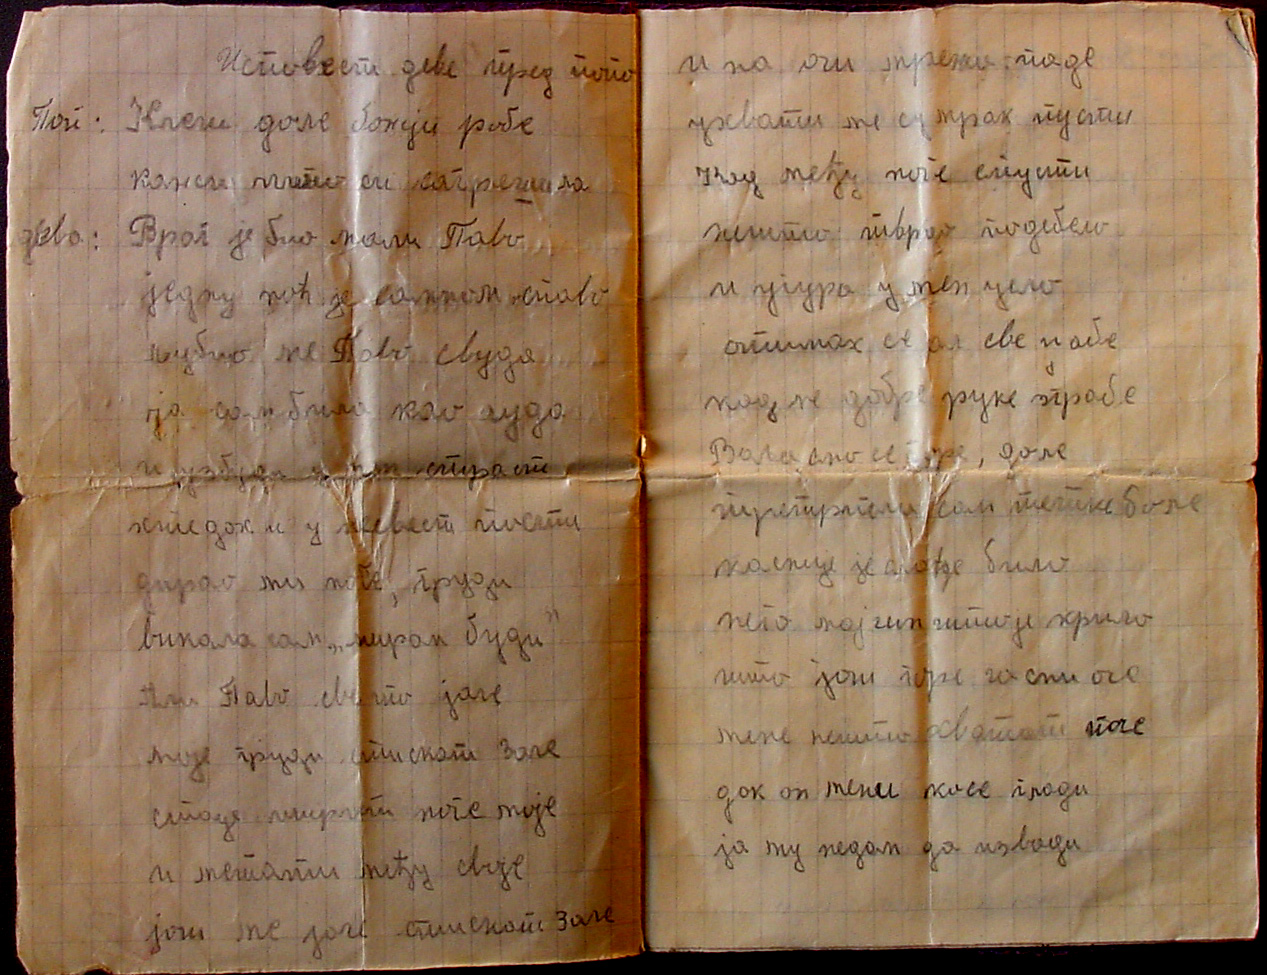 Исповест деве пред попо
Поп: Клекни доле божји робе
кажи што си сагрешила
дева: Враг је био мали Паво
једну ноћ је самном спаво
љубио ме Паво свуда
ја сам била као луда
и узбуди у мен страст
хтедох и у свест пасти
дирао ми ноге, груди
викала сам „миран буди"
Али Паво све то јаче
моје груди стискат заче
стаде ширит ноге моје
и метати међу своје
још ме јаче стискат заче
и на очи мрежа паде
ухвати ме сумрак пусти
Кад међу ноге спусти
нешто тврдо подебело
и угура у мен цело
отимах се ал све џабе
кад ме добре руке грабе
Вала смо се горе, доле
претрпела сам тешке боле
касније је слађе било
него мој чин што је крило
што још горе часни оче
мене нешто хватат поче
док он мени косе глади
ја му недам да извади